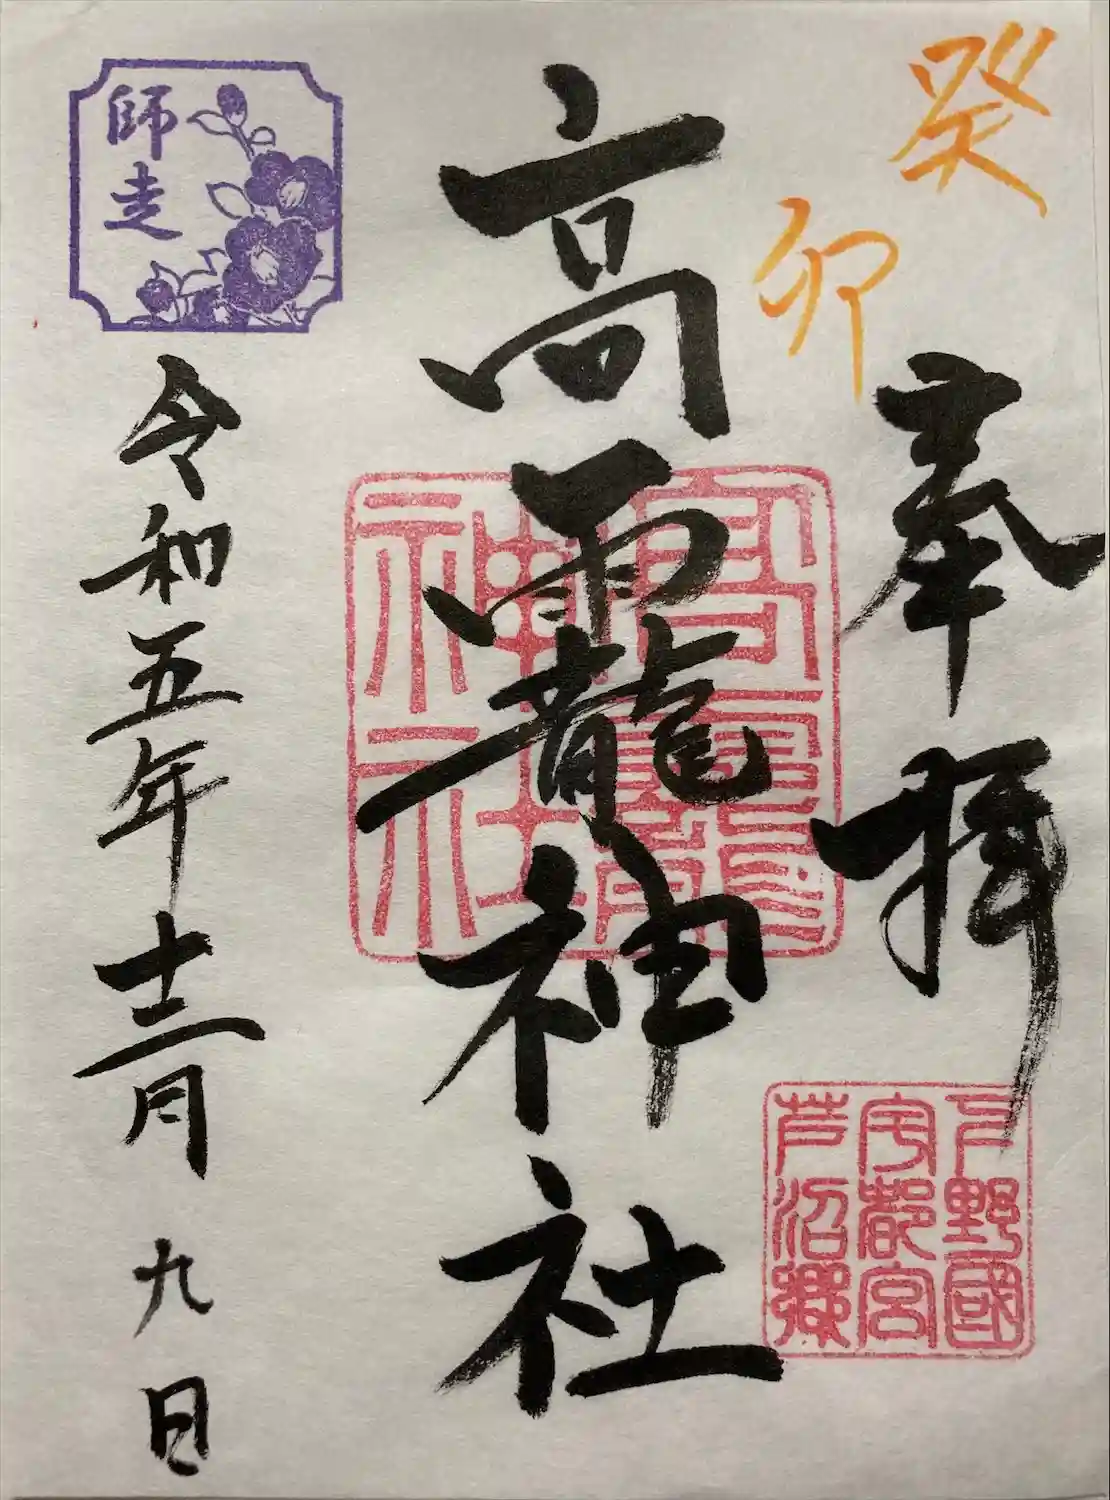 癸卯
奉拝
下野國
宇都宮
芦沼郷
高龗神社
高龗
神社
師走
令和五年十二月九日